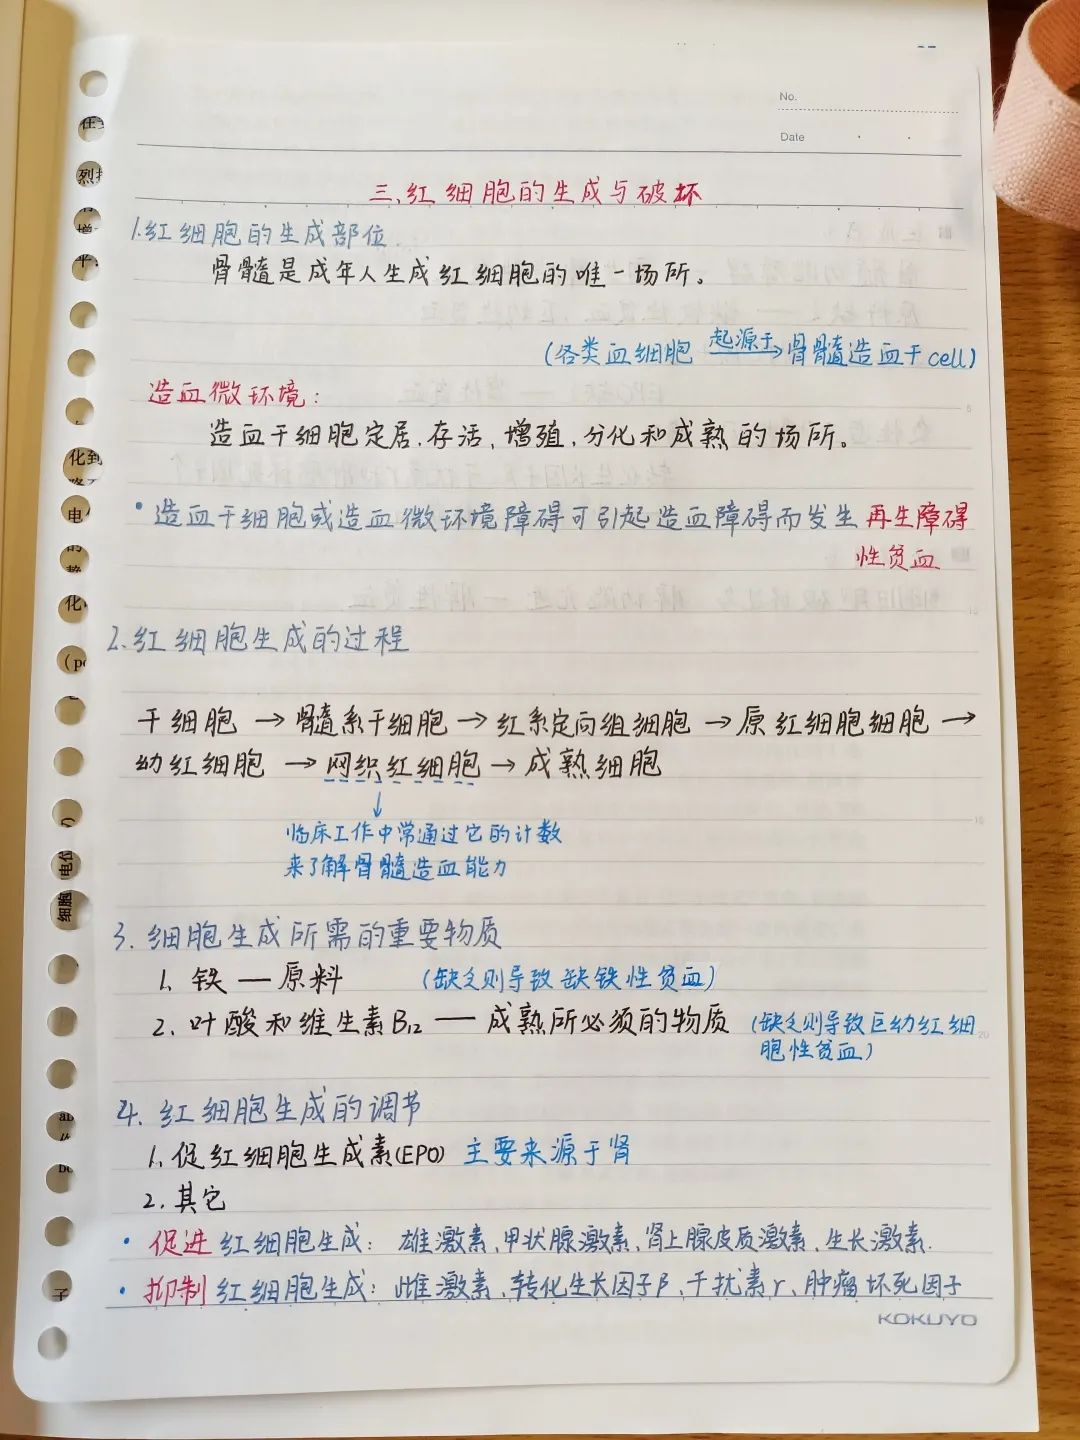 No.
Date
三.红细胞的生成与破坏
1.红细胞的生成部位.
骨髓是成年人生成红细胞的唯一场所。
(各类血细胞 起源于→ 骨髓造血干cell)
造血微环境:
造血干细胞定居.存活,增殖,分化和成熟的场所。
·造血干细胞或造血微环境障碍可引起造血障碍而发生再生障碍
性贫血
2.红细胞生成的过程
干细胞 → 骨髓系干细胞 → 红系定向组细胞 → 原红细胞细胞 →
幼红细胞 → 网织红细胞 → 成熟细胞
↓
临床工作中常通过它的计数
来了解骨髓造血能力
3.细胞生成所需的重要物质
1.铁 — 原料 (缺乏则导致缺铁性贫血)
2.叶酸和维生素B12 — 成熟所必须的物质 (缺乏则导致巨幼红细
胞性贫血)
4.红细胞生成的调节
1.促红细胞生成素(EPO) 主要来源于肾
2.其它
·促进红细胞生成: 雄激素、甲状腺激素、肾上腺皮质激素、生长激素.
·抑制红细胞生成: 雌激素、转化生长因子β、干扰素r、肿瘤坏死因子
KOKUYO